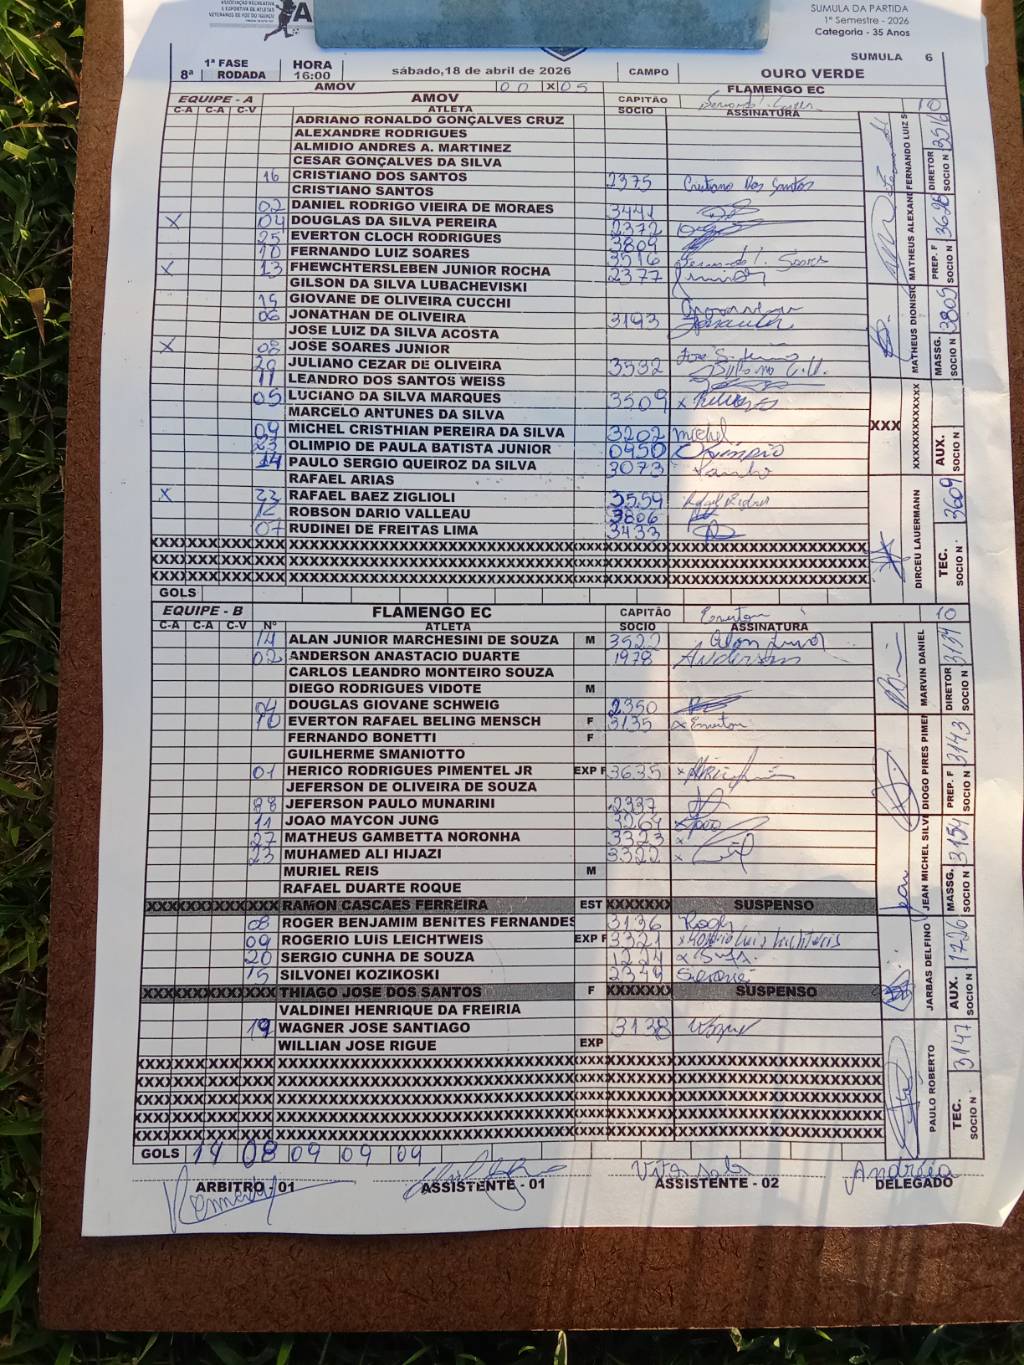 ASSOCIAÇÃO RECREATIVA
E ESPORTIVA DE ATLETAS
VETERANOS DE FOZ DO IGUAÇU
SUMULA DA PARTIDA
1º Semestre - 2026
Categoria - 35 Anos
SUMULA 6
8ª 1ª FASE RODADA HORA 16:00 sábado,18 de abril de 2026 CAMPO OURO VERDE
AMOV 00 X 05 FLAMENGO EC
EQUIPE - A AMOV CAPITÃO 10
C-A C-A C-V ATLETA SOCIO ASSINATURA
ADRIANO RONALDO GONÇALVES CRUZ
ALEXANDRE RODRIGUES
ALMIDIO ANDRES A. MARTINEZ
CESAR GONÇALVES DA SILVA
16 CRISTIANO DOS SANTOS 2375 Cristiano Dos Santos
CRISTIANO SANTOS
02 DANIEL RODRIGO VIEIRA DE MORAES 3441
X 04 DOUGLAS DA SILVA PEREIRA 2372
25 EVERTON CLOCH RODRIGUES 3809
10 FERNANDO LUIZ SOARES 3516 Fernando L. Soares
X 13 FHEWCHTERSLEBEN JUNIOR ROCHA 2377 Junior
GILSON DA SILVA LUBACHEVISKI
15 GIOVANE DE OLIVEIRA CUCCHI
06 JONATHAN DE OLIVEIRA 3193
JOSE LUIZ DA SILVA ACOSTA
X 08 JOSE SOARES JUNIOR
20 JULIANO CEZAR DE OLIVEIRA 3592
11 LEANDRO DOS SANTOS WEISS
05 LUCIANO DA SILVA MARQUES 3509
MARCELO ANTUNES DA SILVA
09 MICHEL CRISTHIAN PEREIRA DA SILVA 3202 Michel
23 OLIMPIO DE PAULA BATISTA JUNIOR 0950 Olimpio
14 PAULO SERGIO QUEIROZ DA SILVA 3073
RAFAEL ARIAS
X 22 RAFAEL BAEZ ZIGLIOLI 3559
12 ROBSON DARIO VALLEAU 3806
07 RUDINEI DE FREITAS LIMA 3433
XXX XXX XXX XXX XXXXXXXXXXXXXXXXXXXXXXXXXXXX
XXX XXX XXX XXX XXXXXXXXXXXXXXXXXXXXXXXXXXXX
XXX XXX XXX XXX XXXXXXXXXXXXXXXXXXXXXXXXXXXX
GOLS
FERNANDO LUIZ S DIRETOR SOCIO N 3516
MATHEUS ALEXAND PREP. F SOCIO N 3628
MATHEUS DIONISIO MASSG. SOCIO N 3805
XXX XXXXXXXXXXXX AUX. SOCIO N
DIRCEU LAUERMANN TEC. SOCIO N 3609
EQUIPE - B FLAMENGO EC CAPITÃO Everton 10
C-A C-A C-V Nº ATLETA SOCIO ASSINATURA
14 ALAN JUNIOR MARCHESINI DE SOUZA M 3522 Alan Junior
02 ANDERSON ANASTACIO DUARTE 1978 Anderson
CARLOS LEANDRO MONTEIRO SOUZA
DIEGO RODRIGUES VIDOTE M
04 DOUGLAS GIOVANE SCHWEIG 2350
10 EVERTON RAFAEL BELING MENSCH F 3135 x Everton
FERNANDO BONETTI F
GUILHERME SMANIOTTO
01 HERICO RODRIGUES PIMENTEL JR EXP F 3635
JEFERSON DE OLIVEIRA DE SOUZA
88 JEFERSON PAULO MUNARINI 2337
11 JOAO MAYCON JUNG 3261 x João
27 MATHEUS GAMBETTA NORONHA 3323 x
23 MUHAMED ALI HIJAZI 3322 x
MURIEL REIS M
RAFAEL DUARTE ROQUE
XXXXXXXXXXXXXXX RAMON CASCAES FERREIRA EST XXXXXXX SUSPENSO
08 ROGER BENJAMIM BENITES FERNANDES 3136 Roger
09 ROGERIO LUIS LEICHTWEIS EXP F 3321 x Rogério Luis Leichtweis
20 SERGIO CUNHA DE SOUZA 1224
15 SILVONEI KOZIKOSKI 2349 Silvonei
XXXXXXXXXXXXXXX THIAGO JOSE DOS SANTOS F XXXXXXX SUSPENSO
VALDINEI HENRIQUE DA FREIRIA
19 WAGNER JOSE SANTIAGO 3138 Wagner
WILLIAN JOSE RIGUE EXP
XXX XXX XXX XXX XXXXXXXXXXXXXXXXXXXXXXXXXXXX
XXX XXX XXX XXX XXXXXXXXXXXXXXXXXXXXXXXXXXXX
XXX XXX XXX XXX XXXXXXXXXXXXXXXXXXXXXXXXXXXX
XXX XXX XXX XXX XXXXXXXXXXXXXXXXXXXXXXXXXXXX
XXX XXX XXX XXX XXXXXXXXXXXXXXXXXXXXXXXXXXXX
GOLS 14 08 09 09 09
MARVIN DANIEL DIRETOR SOCIO N 3134
DIOGO PIRES PIMEN PREP. F SOCIO N 3143
Jean JEAN MICHEL SILVE MASSG. SOCIO N 3154
JARBAS DELFINO AUX. SOCIO N 1726
PAULO ROBERTO TEC. SOCIO N 3147
ARBITRO 01 ASSISTENTE - 01 ASSISTENTE - 02 Andréia DELEGADO